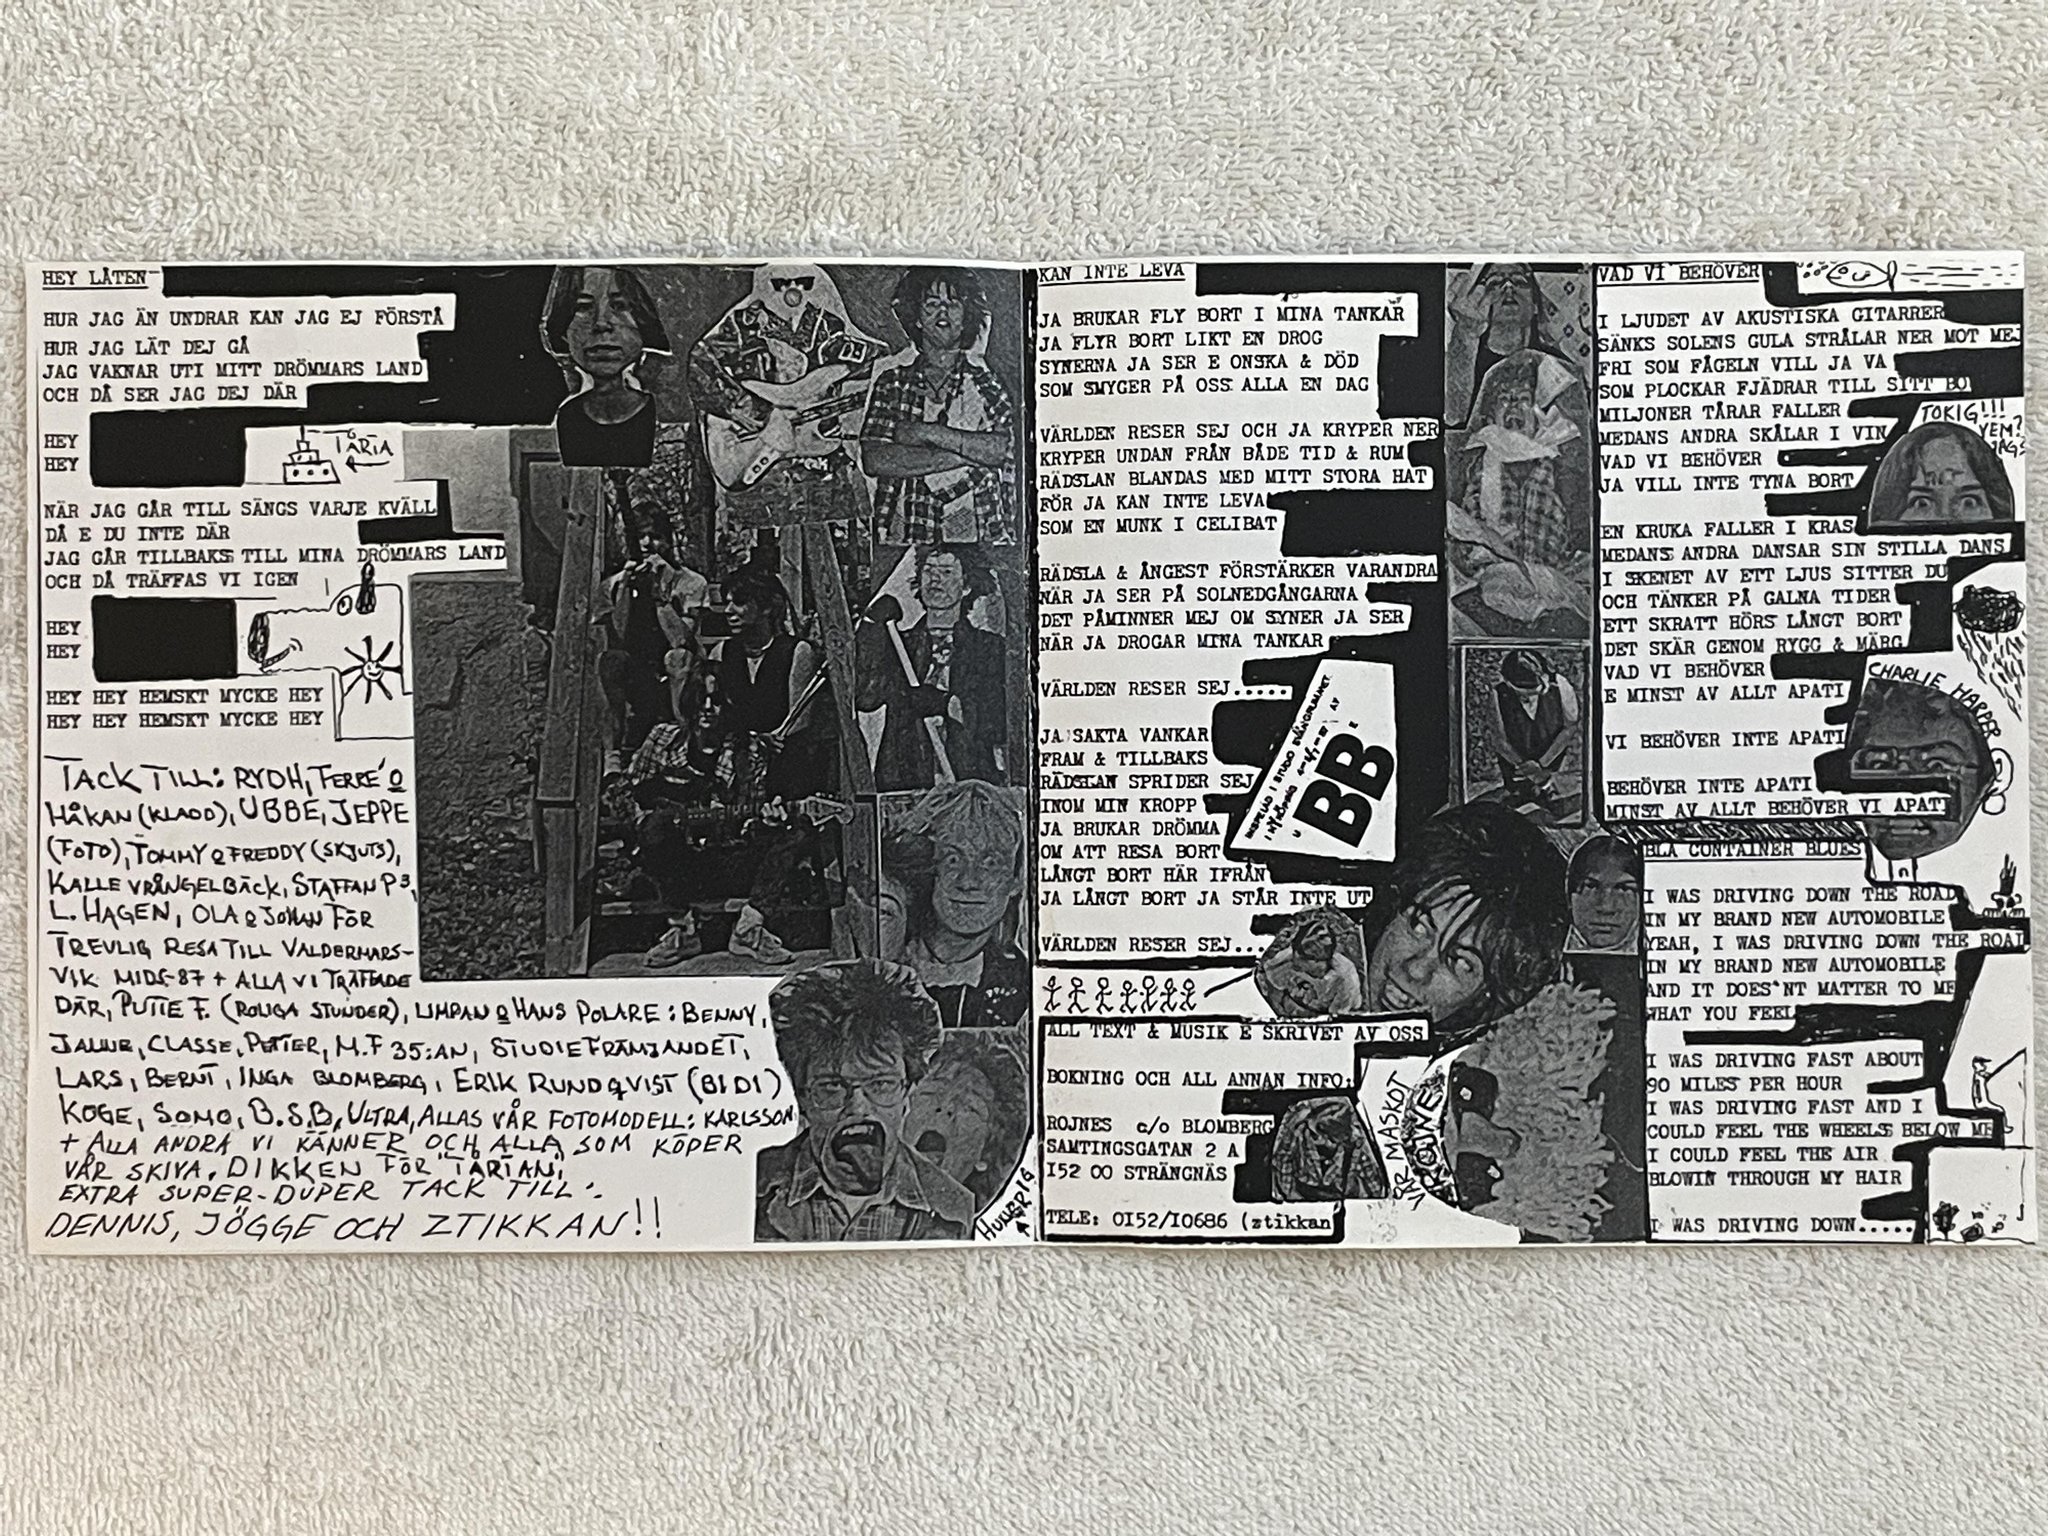 HEY LÅTEN
HUR JAG ÄN UNDRAR KAN JAG EJ FÖRSTÅ
HUR JAG LÄT DEJ GÅ
JAG VAKNAR UTI MITT DRÖMMARS LAND
OCH DÅ SER JAG DEJ DÄR
HEY
HEY
TÄRTA
NÄR JAG GÅR TILL SÄNGS VARJE KVÄLL
DÅ E DU INTE DÄR
JAG GÅR TILLBAKS TILL MINA DRÖMMARS LAND
OCH DÅ TRÄFFAS VI IGEN
HEY
HEY
HEY HEY HEMSKT MYCKE HEY
HEY HEY HEMSKT MYCKE HEY
TACK TILL: RYDH, FERRÉ O
HÅKAN (KLADD), UBBE, JEPPE
(FOTO), TOMMY O FREDDY (SKJUTS),
KALLE VRÅNGELBÄCK, STAFFAN P3,
L. HAGEN, OLA O JOHAN FÖR
TREVLIG RESA TILL VALDERMARS-
VIK MIDS-87 + ALLA VI TRÄFFADE
DÄR, PUTTE F. (ROLIGA STUNDER), LIMPAN O HANS POLARE: BENNY,
CLASSE, PETTER, M.F 35:AN, STUDIEFRÄMJANDET,
LARS, BERNT, INGA BLOMBERG, ERIK RUNDQVIST (BIDI)
KOGE, SOMO, B.S.B, ULTRA, ALLAS VÅR FOTOMODELL: KARLSSON
+ ALLA ANDRA VI KÄNNER OCH ALLA SOM KÖPER
VÅR SKIVA, DIKKEN FÖR TÄRTAN,
EXTRA SUPER-DUPER TACK TILL:
DENNIS, JÖGGE OCH ZTIKKAN!!
HUNGRIG
KAN INTE LEVA
JA BRUKAR FLY BORT I MINA TANKAR
JA FLYR BORT LIKT EN DROG
SYNERNA JA SER E ONSKA & DÖD
SOM SMYGER PÅ OSS ALLA EN DAG
VÄRLDEN RESER SEJ OCH JA KRYPER NER
KRYPER UNDAN FRÅN BÅDE TID & RUM
RÄDSLAN BLANDAS MED MITT STORA HAT
FÖR JA KAN INTE LEVA
SOM EN MUNK I CELIBAT
RÄDSLA & ÅNGEST FÖRSTÄRKER VARANDRA
NÄR JA SER PÅ SOLNEDGÅNGARNA
DET PÅMINNER MEJ OM SYNER JA SER
NÄR JA DROGAR MINA TANKAR
VÄRLDEN RESER SEJ.....
JA SAKTA VANKAR
FRAM & TILLBAKS
RÄDSLAN SPRIDER SEJ
INOM MIN KROPP
JA BRUKAR DRÖMMA
OM ATT RESA BORT
LÅNGT BORT HÄR IFRÅN
JA LÅNGT BORT JA STÅR INTE UT
VÄRLDEN RESER SEJ...
INSPELAD I STUDIO
I NYKÖPING
AV
BB
ALL TEXT & MUSIK E SKRIVET AV OSS
BOKNING OCH ALL ANNAN INFO:
ROJNES c/o BLOMBERG
SAMTINGSGATAN 2 A
152 00 STRÄNGNÄS
TELE: 0152/10686 (ztikkan
VÅR MASKOT
VAD VI BEHÖVER
I LJUDET AV AKUSTISKA GITARRER
SÄNKS SOLENS GULA STRÅLAR NER MOT MEJ
FRI SOM FÅGELN VILL JA VA
SOM PLOCKAR FJÄDRAR TILL SITT BO
MILJONER TÅRAR FALLER
MEDANS ANDRA SKÅLAR I VIN
VAD VI BEHÖVER
JA VILL INTE TYNA BORT
TOKIG!!!
VEM?
JAG?
EN KRUKA FALLER I KRAS
MEDANS ANDRA DANSAR SIN STILLA DANS
I SKENET AV ETT LJUS SITTER DU
OCH TÄNKER PÅ GALNA TIDER
ETT SKRATT HÖRS LÅNGT BORT
DET SKÄR GENOM RYGG & MÄRG
VAD VI BEHÖVER
E MINST AV ALLT APATI
CHARLIE HARPER
VI BEHÖVER INTE APATI
BEHÖVER INTE APATI
MINST AV ALLT BEHÖVER VI APATI
BLÅ CONTAINER BLUES
I WAS DRIVING DOWN THE ROAD
IN MY BRAND NEW AUTOMOBILE
YEAH, I WAS DRIVING DOWN THE ROAD
IN MY BRAND NEW AUTOMOBILE
AND IT DOES'NT MATTER TO ME
WHAT YOU FEEL
I WAS DRIVING FAST ABOUT
90 MILES PER HOUR
I WAS DRIVING FAST AND I
COULD FEEL THE WHEELS BELOW ME
I COULD FEEL THE AIR
BLOWIN THROUGH MY HAIR
I WAS DRIVING DOWN.....